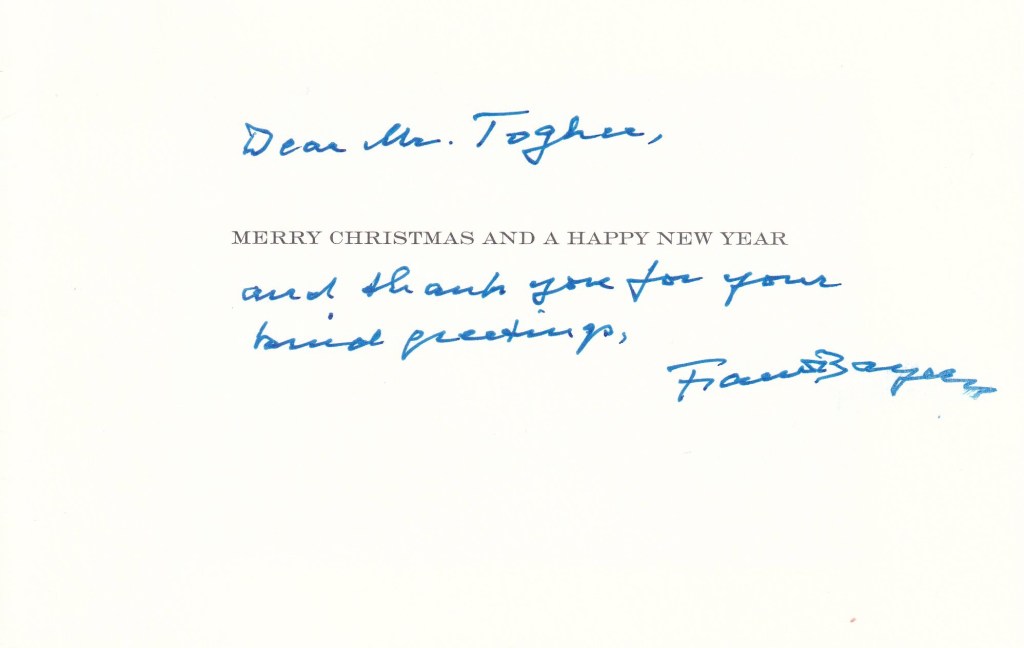 Dear Mr. Toghee,
MERRY CHRISTMAS AND A HAPPY NEW YEAR
and thank you for your
kind greetings,
Franz Bayer